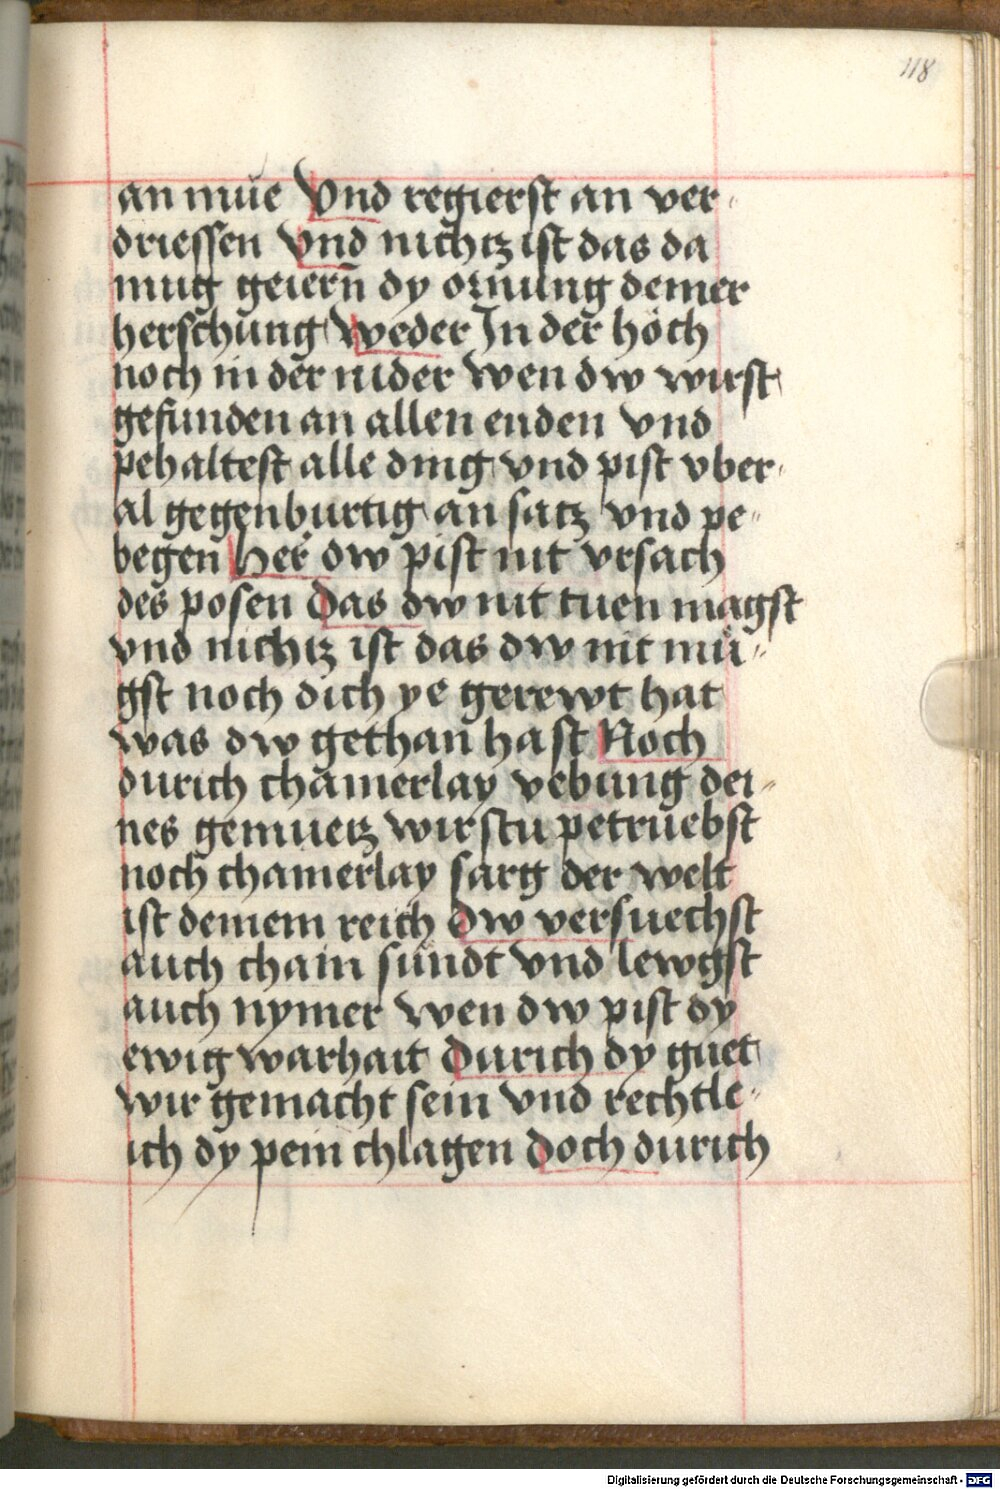 118
an müe Vnd regierst an ver-
driessen Vnd nichtz ist das da
mug geiern̄ dy ornung deiner
herschung Weder In der höch
noch in der nider wen dw wirst
gefunden an allen enden vnd
pehaltest alle ding vnd pist vber-
al gegenburtig an satz vnd pe-
begen Her dw pist nit vrsach
des posen Das dw nit tuen magst
vnd nichtz ist das dw nit mü-
gst noch dich ye gerewt hat
was dw gethan hast Noch
durich chamerlay vebung dei-
nes gemuetz wirstu petruebst
noch chamerlay sarg der welt
ist deinem reich Dw versuechst
auch chain sündt vnd lewgst
auch nymer wen dw pist dy
ewig warhait Durich dy guet
wir gemacht sein vnd rechtle-
ich dy pein chlagen Doch durich
Digitalisierung gefördert durch die Deutsche Forschungsgemeinschaft - DFG